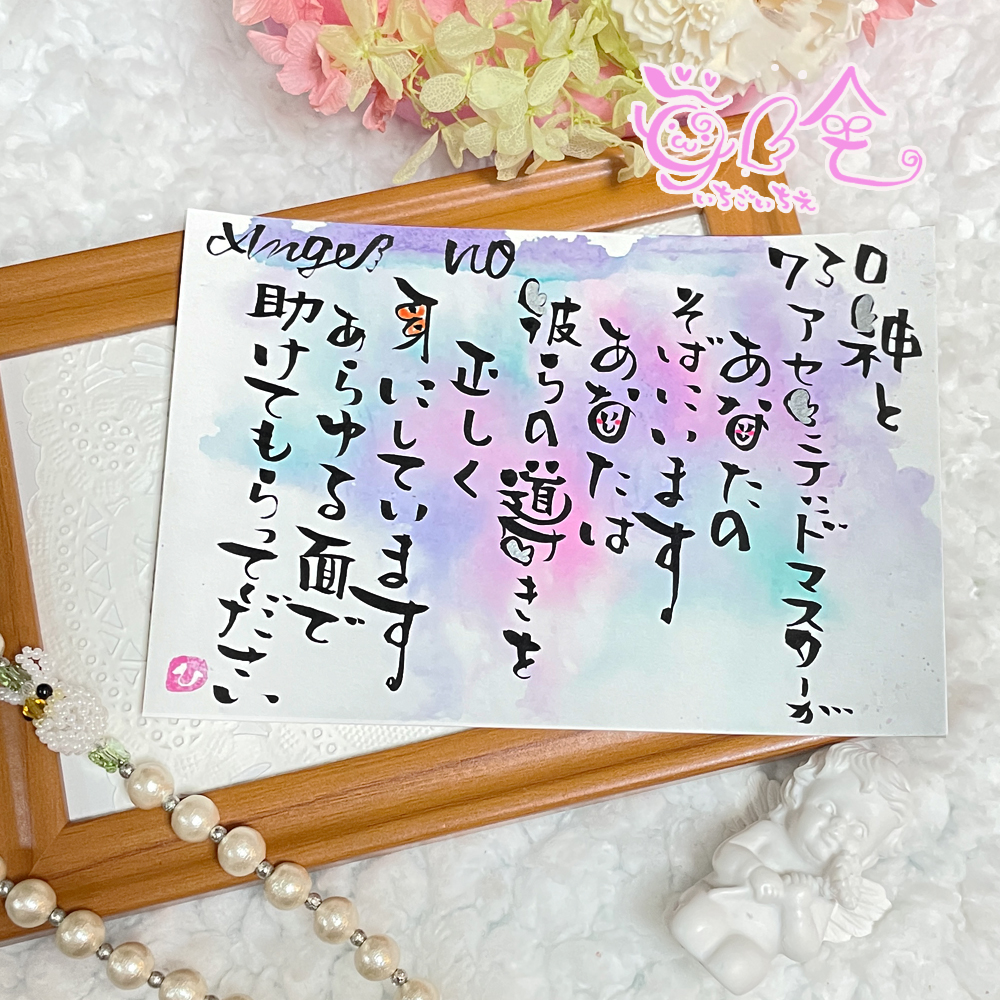 Angel NO 730
神と
アセンテッドマスターが
あなたの
そばにいます
あなたは
彼らの導きを
正しく
耳にしています
あらゆる面で
助けてもらってください
いちごいちえ